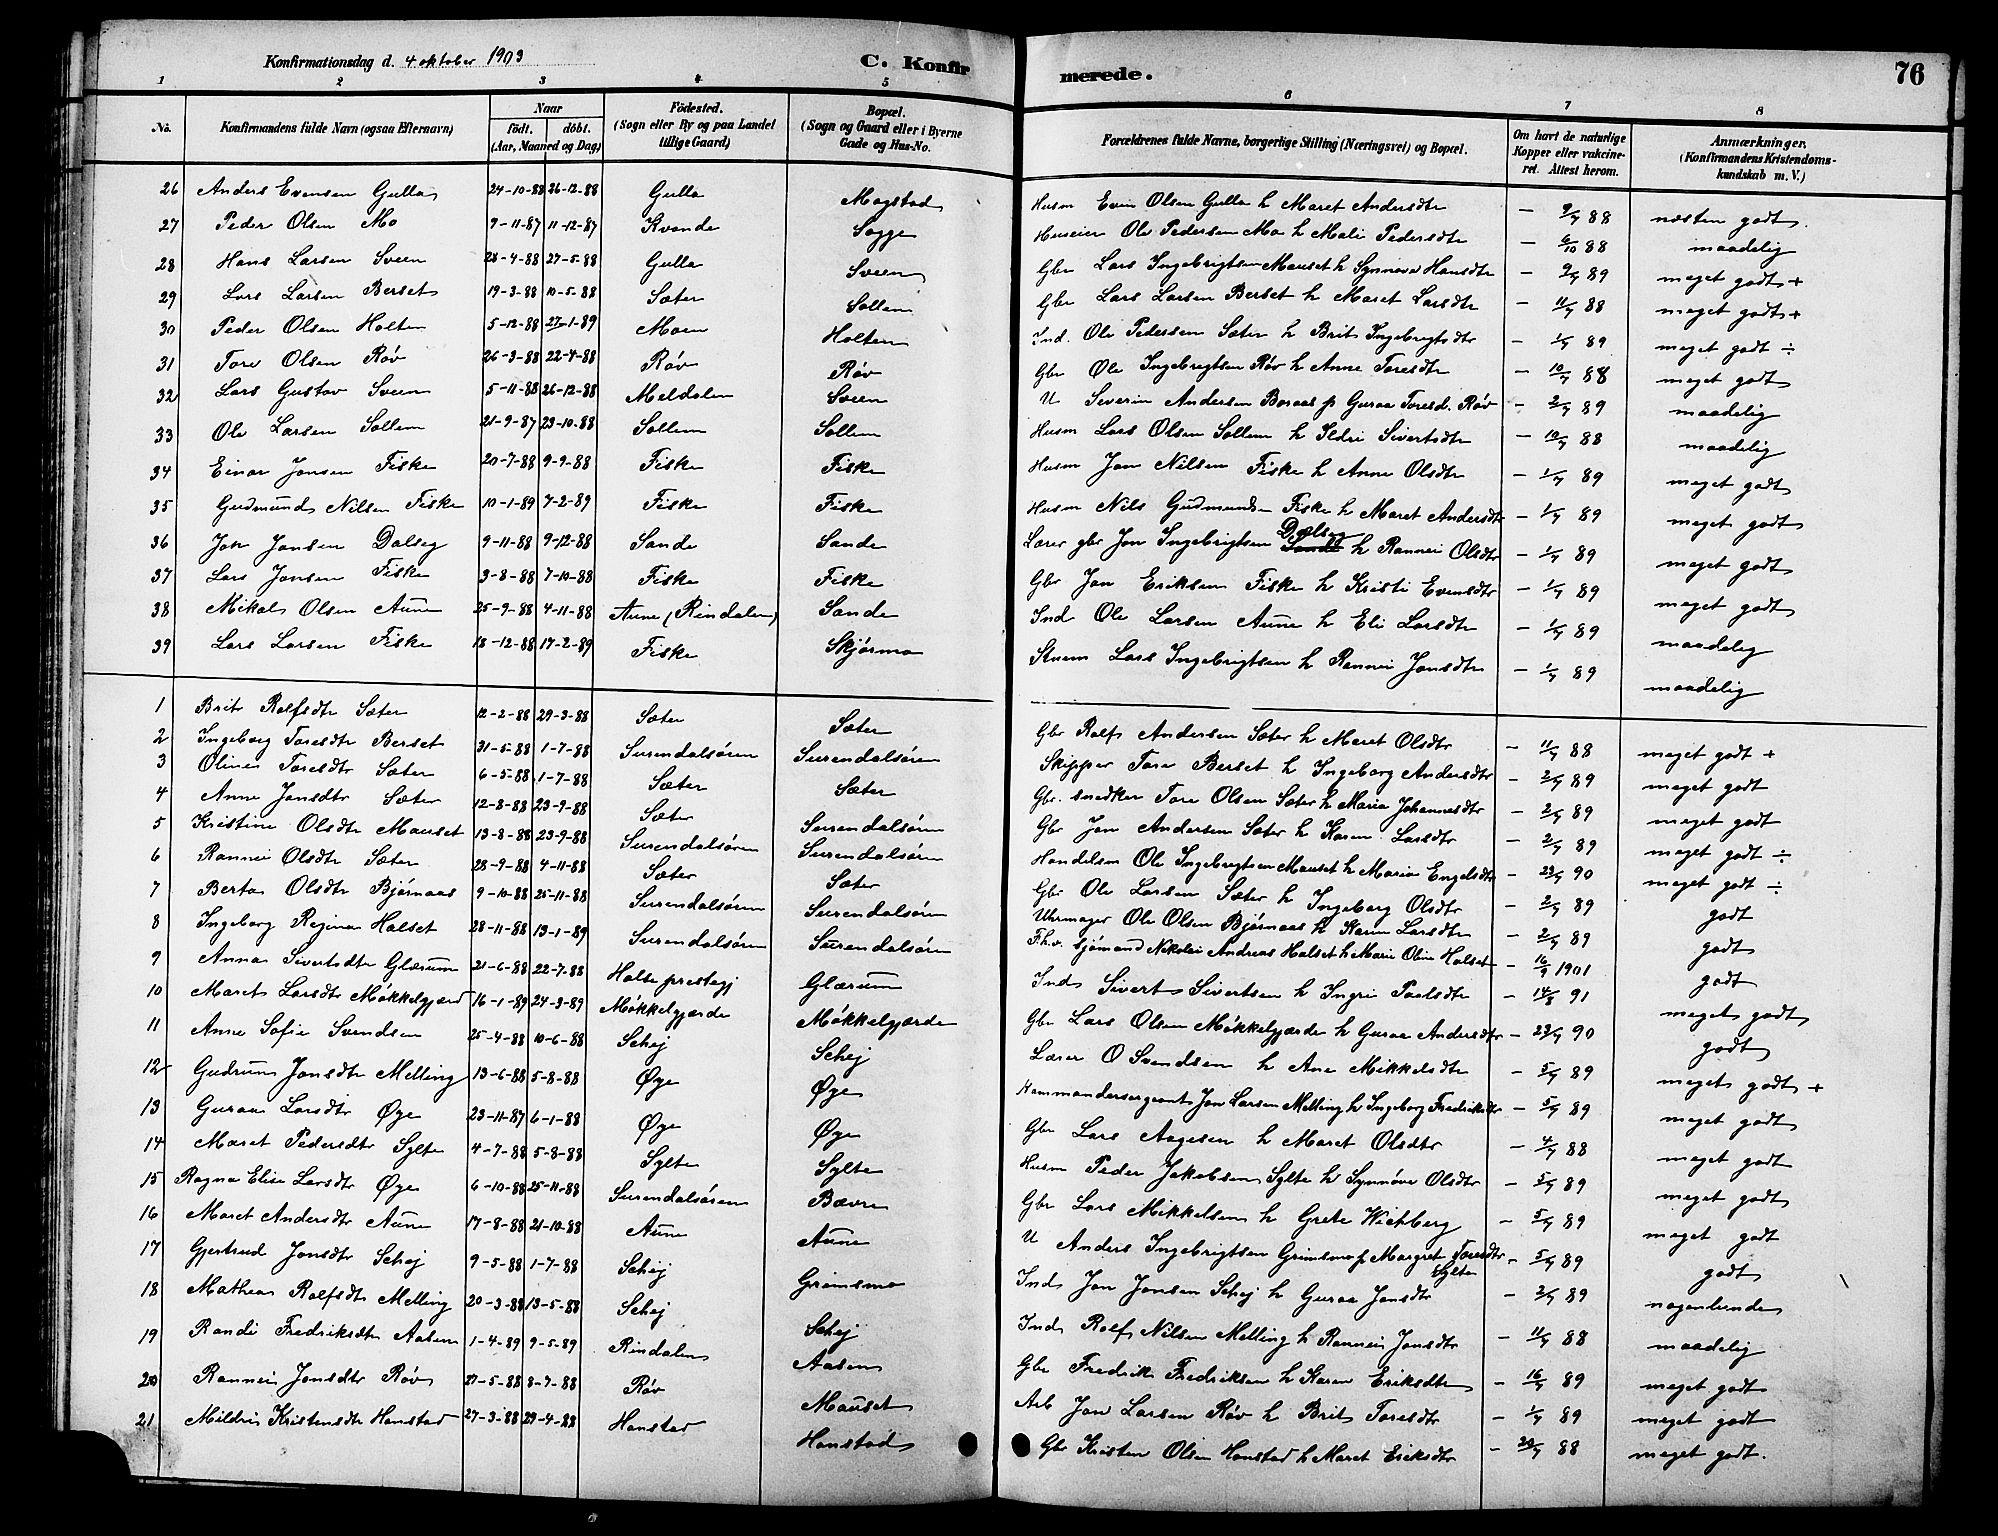 Konfirmationsdag d. 4 oktober 1903
C. Konfir
merede.
76
1 2 3 4 5 6 7 8
No. Konfirmandens fulde Navn (ogsaa Efternavn) Naar født. døbt. (Aar, Maaned og Dag) Födested. (Sogn eller By og paa Landet tillige Gaard) Bopæl. (Sogn og Gaard eller i Byerne Gade og Hus-No. Forældrenes fulde Navne, borgerlige Stilling (Næringsvei) og Bopæl. Om havt de naturlige Kopper eller vakcineret. Attest herom. Anmærkninger. (Konfirmandens Kristendomskundskab m. V.)
26 Anders Evensen Gulla 24-10-88 26-12-88 Gulla Mogstad Husm Even Olsen Gulla h Maret Andersdtr - 9/7 88 næsten godt.
27 Peder Olsen Mo 9-11-87 11-12-87 Kvande Sogge Huseier Ole Pedersen Mo h Mali Pedersdtr - 6/10 88 maadelig
28 Hans Larsen Sveen 28-4-88 27-5-88 Gulla Sveen Gbr Lars Ingebrigtsen Mauset h Synnøva Hansdtr - 2/7 89 meget godt +
29 Lars Larsen Berset 19-3-88 10-5-88 Sæter Sollem Gbr Lars Larsen Berset h Maret Larsdtr - 11/7 88 meget godt +
30 Peder Olsen Holten 5-12-88 27-1-89 Moen Holten Ind. Ole Pedersen Sæter h Brit Ingebrigtsdtr - 1/7 89 meget godt ÷
31 Tore Olsen Røv 26-3-88 22-4-88 Røv Røv Gbr Ole Ingebrigtsen Røv h Anne Toresdtr - 10/7 88 meget godt
32 Lars Gustav Sveen 5-11-88 26-12-88 Meldalen Sveen U Severin Andersen Boraas p Guraa Toresd. Røv - 2/7 89 maadelig
33 Ole Larsen Sollem 21-9-87 23-10-88 Sollem Sollem Husm Lars Olsen Sollem h Ildri Sivertsdtr - 10/7 88 maadelig
34 Einar Jonsen Fiske 20-7-88 9-9-88 Fiske Fiske Husm Jon Nilsen Fiske h Anne Olsdtr - 1/7 89 meget godt
35 Gudmund Nilsen Fiske 10-1-89 7-2-89 Fiske Fiske Husm Nils Gudmunds Fiske h Maret Andersdtr - 1/7 89 meget godt
36 Jon Jonsen Dalseg 9-11-88 9-12-88 Sande Sande Lærer gbr Jon Ingebrigtsen Dalseg Sande h Rannei Olsdtr - 1/7 89 meget godt
37 Lars Jonsen Fiske 3-8-88 7-10-88 Fiske Fiske Gbr Jon Eriksen Fiske h Kristi Evensdtr - 1/7 89 meget godt
38 Mikal Olsen Aune 25-9-88 4-11-88 Aune (Rindalen) Sande Ind Ole Larsen Aune h Eli Larsdtr - 1/7 89 maadelig
39 Lars Larsen Fiske 18-12-88 17-2-89 Fiske Skjørmo Stuem Lars Ingebrigtsen h Rannei Jonsdtr - 1/7 89 maadelig
1 Brit Rolfsdtr Sæter 12-2-88 29-3-88 Sæter Sæter Gbr Rolf Andersen Sæter h Maret Olsdtr - 11/7 88 meget godt +
2 Ingeborg Toresdtr Berset 31-5-88 1-7-88 Surendalsøren Surendalsøren Skipper Tore Berset h Ingeborg Andersdtr - 2/7 89 meget godt
3 Oline Toresdtr Sæter 6-5-88 1-7-88 Sæter Sæter Gbr. snedker Tore Olsen Sæter h Maria Johannesdtr - 2/7 89 meget godt
4 Anne Jonsdtr Sæter 12-8-88 23-9-88 Sæter Surendalsøren Gbr Jon Andersen Sæter h Karen Larsdtr - 2/7 89 meget godt ÷
5 Kristine Olsdtr Mauset 13-8-88 23-9-88 Surendalsøren Surendalsøren Handelsm Ole Ingebrigtsen Mauset h Maria Engelsdtr - 23/7 90 meget godt ÷
6 Rannei Olsdtr Sæter 28-9-88 4-11-88 Sæter Sæter Gbr Ole Larsen Sæter h Ingeborg Olsdtr - 2/7 89 godt
7 Berta Olsdtr Bjørnaas 9-10-88 25-11-88 Surendalsøren Surendalsøren Uhrmager Ole Olsen Bjørnaas h Karen Larsdtr - 2/7 89 godt
8 Ingeborg Regina Halset 28-11-88 13-1-89 Surendalsøren Surendalsøren F.h.v. sjømand Nikolai Andreas Halset h Marie Oline Halset - 16/9 1901 godt
9 Anna Sivertsdtr Glærum 21-6-88 22-7-88 Halse prestegj Glærum Ind Sivert Sivertsen h Ingri Paalsdtr - 14/8 91 meget godt
10 Maret Larsdtr Møkkelgjærd 16-1-89 24-3-89 Møkkelgjærde Møkkelgjærde Gbr Lars Olsen Møkkelgjærde h Guraa Andersdtr - 23/7 90 godt
11 Anne Sofie Svendsen 25-4-88 10-6-88 Schej Schej Lærer O Svendsen h Ane Mikkelsdtr - 5/7 89 meget godt +
12 Gudrun Jonsdtr Melling 13-6-88 5-8-88 Øye Øye Kommandersergeant Jon Larsen Melling h Ingeborg Fredriksdtr - 5/7 89 meget godt
13 Guraa Larsdtr Øye 23-11-87 6-1-88 Øye Øye Gbr Lars Aagesen h Maret Olsdtr - 4/7 88 meget godt
14 Maret Pedersdtr Sylte 4-7-88 5-8-88 Sylte Sylte Husm Peder Jakobsen Sylte h Synnøve Olsdtr - 5/7 89 meget godt
15 Ragna Elise Larsdtr Øye 6-10-88 25-11-88 Surendalsøren Bævre Gbr Lars Mikkelsen h Grete Wichberg - 5/7 89 meget godt
16 Maret Andersdtr Aune 17-8-88 21-10-88 Aune Aune U Anders Ingebrigtsen Grimsmo p Margret Toresdtr Sylte - 5/7 89 godt
17 Gjertrud Jonsdtr Schej 9-5-88 1-7-88 Schej Grimsmo Ind Jon Jonsen Schej h Guraa Jonsdtr - 2/7 89 nogenlunde
18 Mathea Rolfsdtr Melling 20-3-88 13-5-88 Schej Schej Ind Rolf Nilsen Melling h Rannei Jonsdtr - 11/7 88 maadelig
19 Randi Fredriksdtr Aasen 1-4-89 9-5-89 Rindalen Aasen Gbr Fredrik Fredriksen h Karen Eriksdtr - 16/7 89 meget godt
20 Rannei Jonsdtr Røv 27-5-88 8-7-88 Røv Mauset Arb Jon Larsen Røv h Brit Toresdtr - 1/7 89 meget godt
21 Mildri Kristensdtr Honstad 27-3-88 29-4-88 Honstad Honstad Gbr Kristen Olsen Honstad h Maret Eriksdtr - 20/7 88 meget godt.